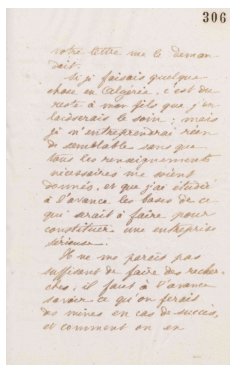 306
votre lettre me le deman
dait.
Si je faisais quelque
chose en Algérie, c'est du
reste à mon fils que j'en
laisserais le soin ; mais
je n'entreprendrai rien
de semblable sans que
tous les renseignements
nécessaires me soient
donnés, et que j'aie étudié
à l'avance les bases de ce
qui serait à faire pour
constituer une entreprise
sérieuse.
Il ne me paraît pas
suffisant de faire des recher
ches, il faut à l'avance
savoir ce qu'on ferait
des mines en cas de succès,
et comment on en